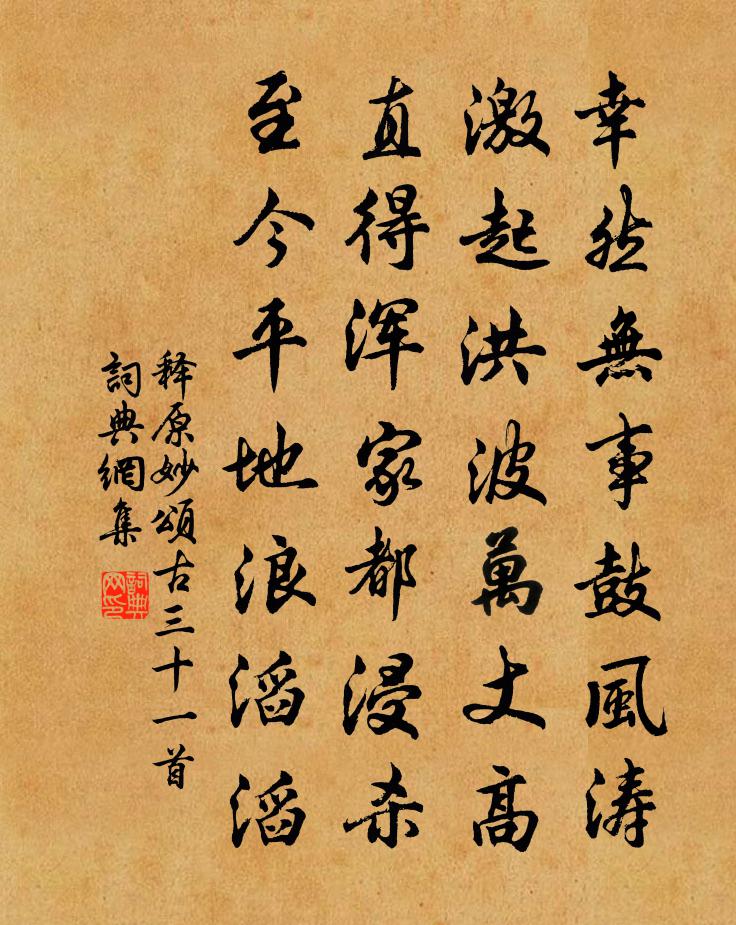 幸然無事鼓風涛
激起洪波萬丈高
直得浑家都浸杀
至今平地浪滔滔
释原妙頌古三十一首
詞典網集
詞典网印